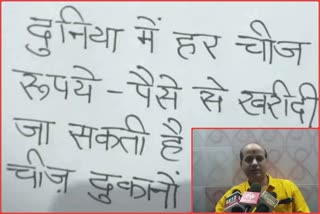 दुनिया में हर चीज
रूपये - पैसे से खरीदी
जा सकती है
चीज़ दुकानों